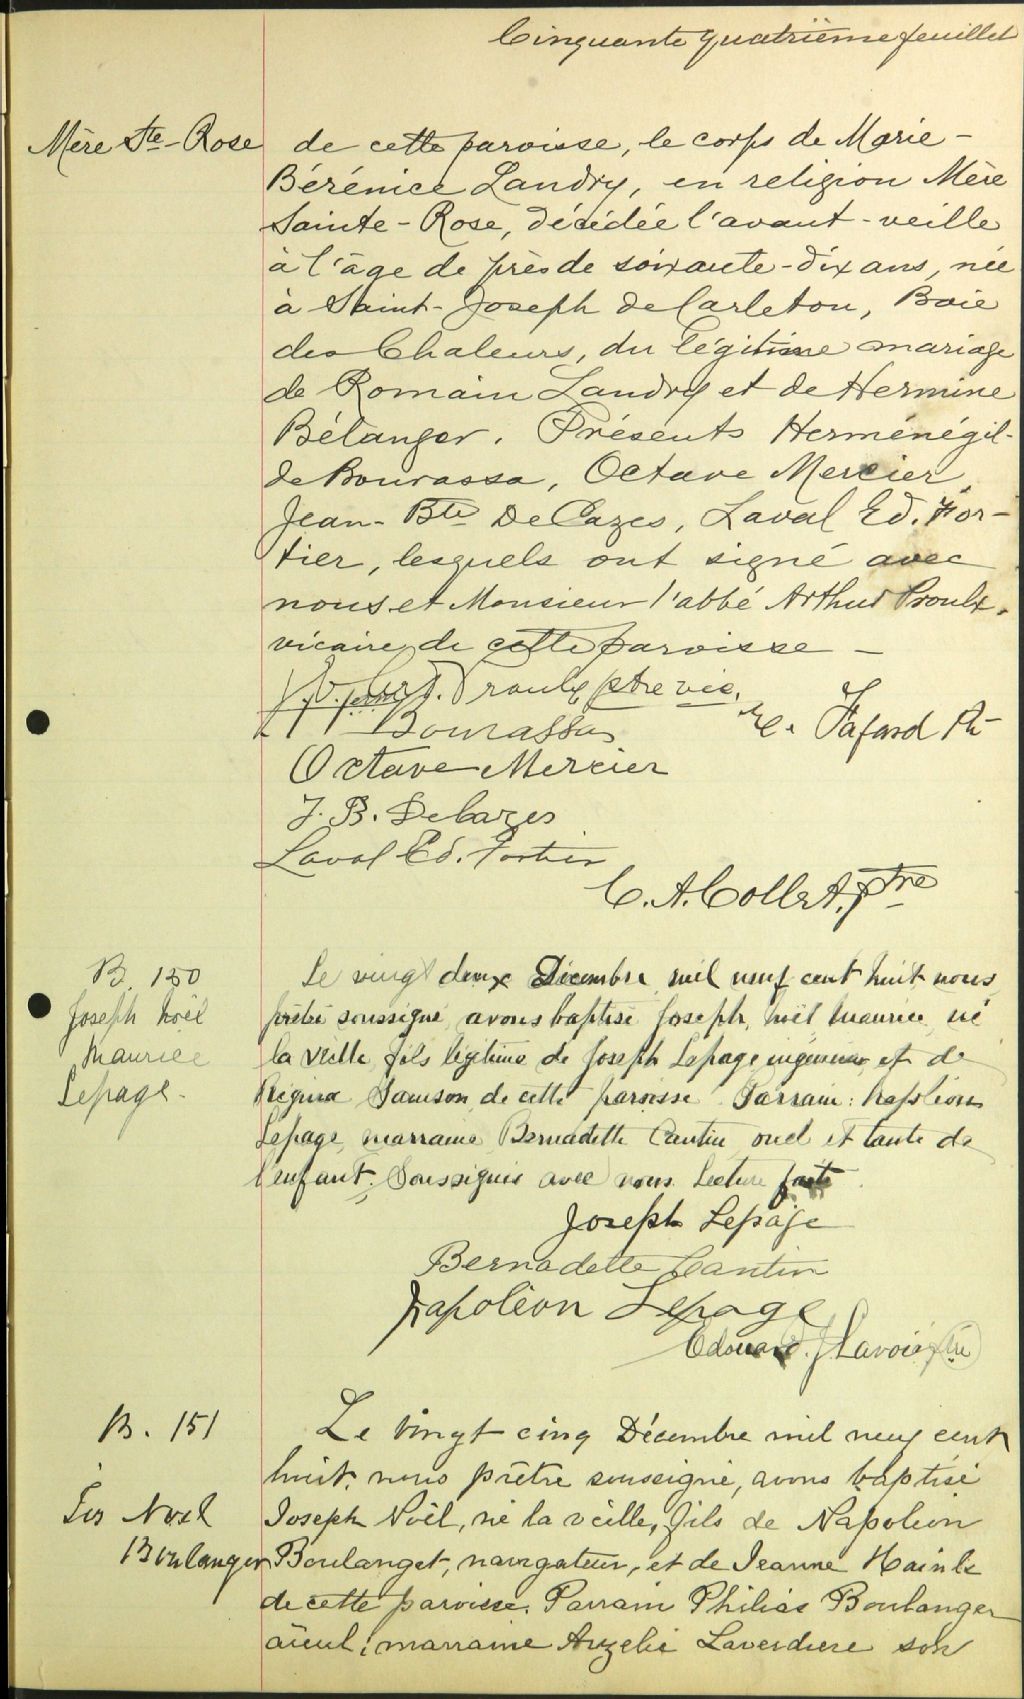 Cinquante quatrième feuillet
Mère Ste-Rose
de cette paroisse, le corps de Marie-
Bérénice Landry, en religion Mère
Sainte-Rose, décédée l'avant-veille
à l'âge de près de soixante-dix ans, née
à Saint-Joseph de Carleton, Baie
des Chaleurs, du légitime mariage
de Romain Landry et de Hermine
Bélanger. Présents Herménégil-
de Bourassa, Octave Mercier,
Jean-Bte DeCazes, Laval Ed. For-
tier, lesquels ont signé avec
nous et Monsieur l'abbé Arthur Proulx,
vicaire de cette paroisse —
Proulx ptre vic.
Bourassa
E. Fafard Ptr
Octave Mercier
J. B. DeCazes
Laval Ed. Fortier
C. A. Collet, Ptre
B. 150
Joseph Noël
Maurice
Lepage.
Le vingt deux Décembre mil neuf cent huit nous
prêtre soussigné avons baptisé Joseph, Noël Maurice né
la veille, fils légitime de Joseph Lepage ingénieur et de
Régina Samson de cette paroisse. Parrain: Napoléon
Lepage, marraine Bernadette Cantin oncl et tante de
l'enfant. Soussignés avec nous. Lecture faite.
Joseph Lepage
Bernadette Cantin
Napoléon Lepage
Edouard J Lavoie ptre
B. 151
Jos Noel
Boulanger
Le vingt cinq Décembre mil neuf cent
huit, nous prêtre soussigné, avons baptisé
Joseph Noël, né la veille, fils de Napoléon
Boulanger, navigateur, et de Jeanne
de cette paroisse. Parrain Philias Boulanger
aïeul; marraine Auzelie Laverdiere son